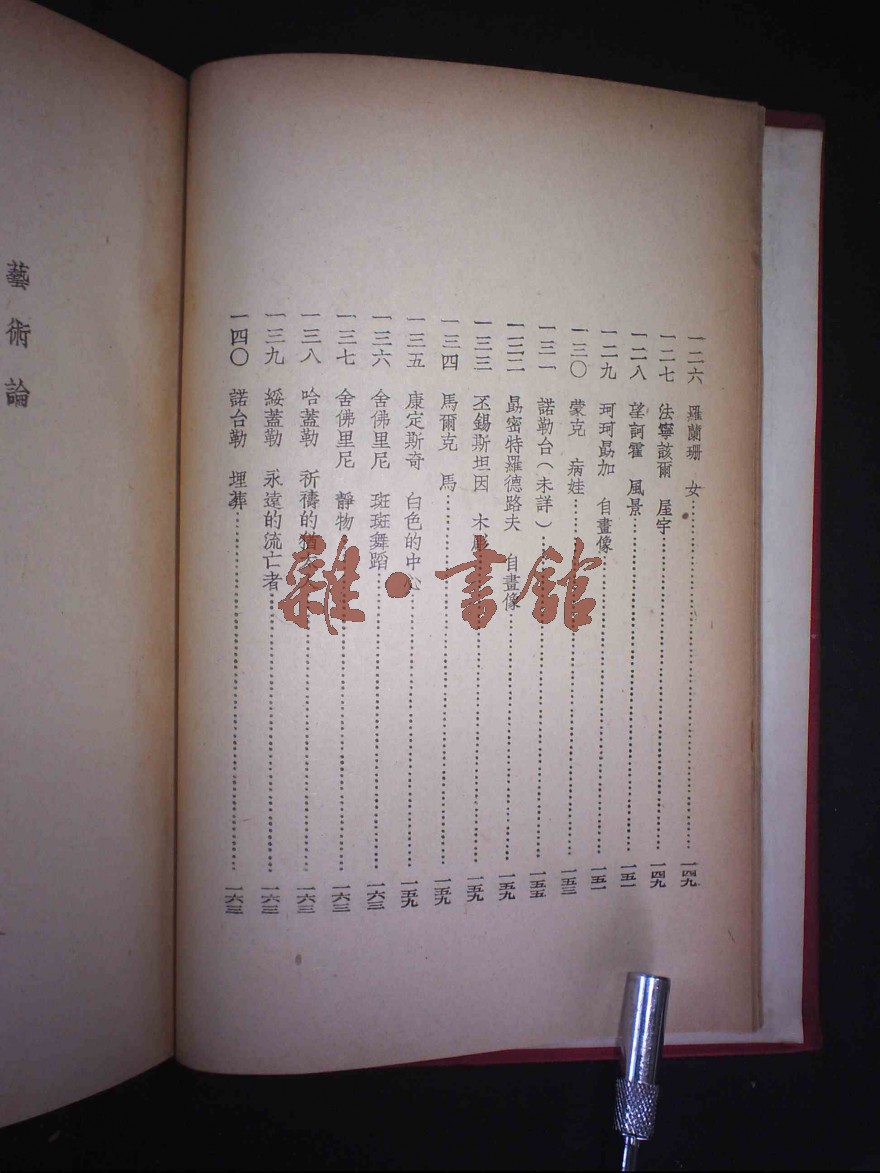 一二六　羅蘭珊　女……一四九
一二七　法寧該爾　屋宇……一四九
一二八　望訶霍　風景……一五一
一二九　珂珂勗加　自畫像……一五一
一三〇　蒙克　病娃……一五三
一三一　諾勒台（未詳）……一五五
一三二　勗密特羅德路夫　自畫像……一五九
一三三　丕錫斯坦因　木彫……一五九
一三四　馬爾克　馬……一五九
一三五　康定斯奇　白色的中心……一五九
一三六　舍佛里尼　斑斑舞蹈……一六三
一三七　舍佛里尼　靜物……一六三
一三八　哈蓋勒　祈禱的猶……一六三
一三九　綏蓋勒　永遠的流亡者……一六三
一四〇　諾台勒　埋葬……一六三
藝術論
雜·書館